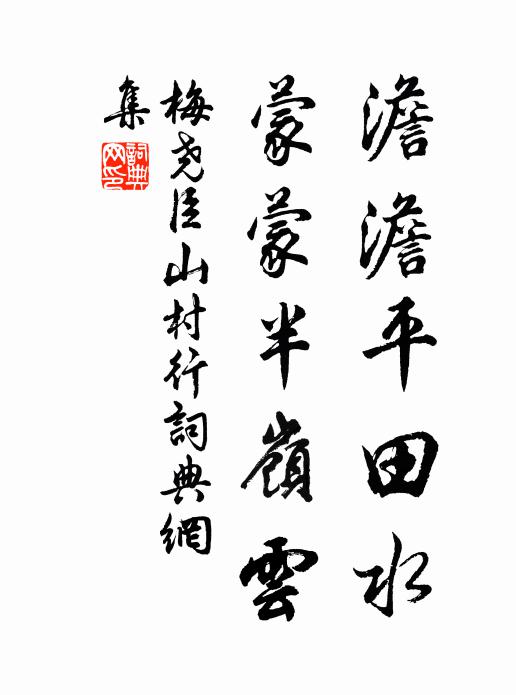 澹澹平田水
蒙蒙半嶺雲
梅堯臣山村行詞典網
集
詞典
网印